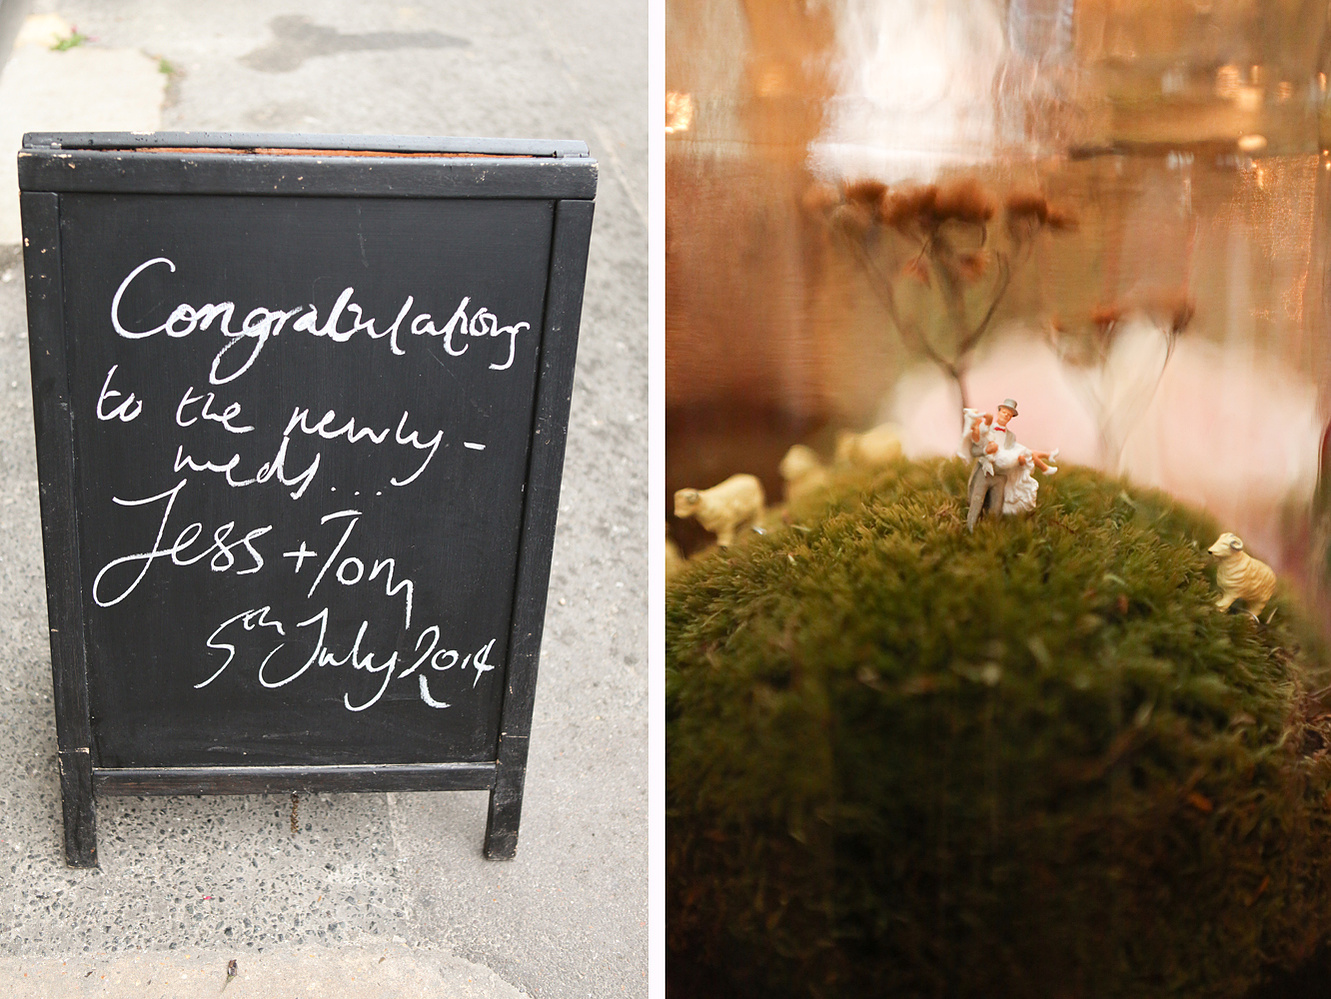 Congratulations
to the newly-
weds...
Jess + Tom
5th July 2014